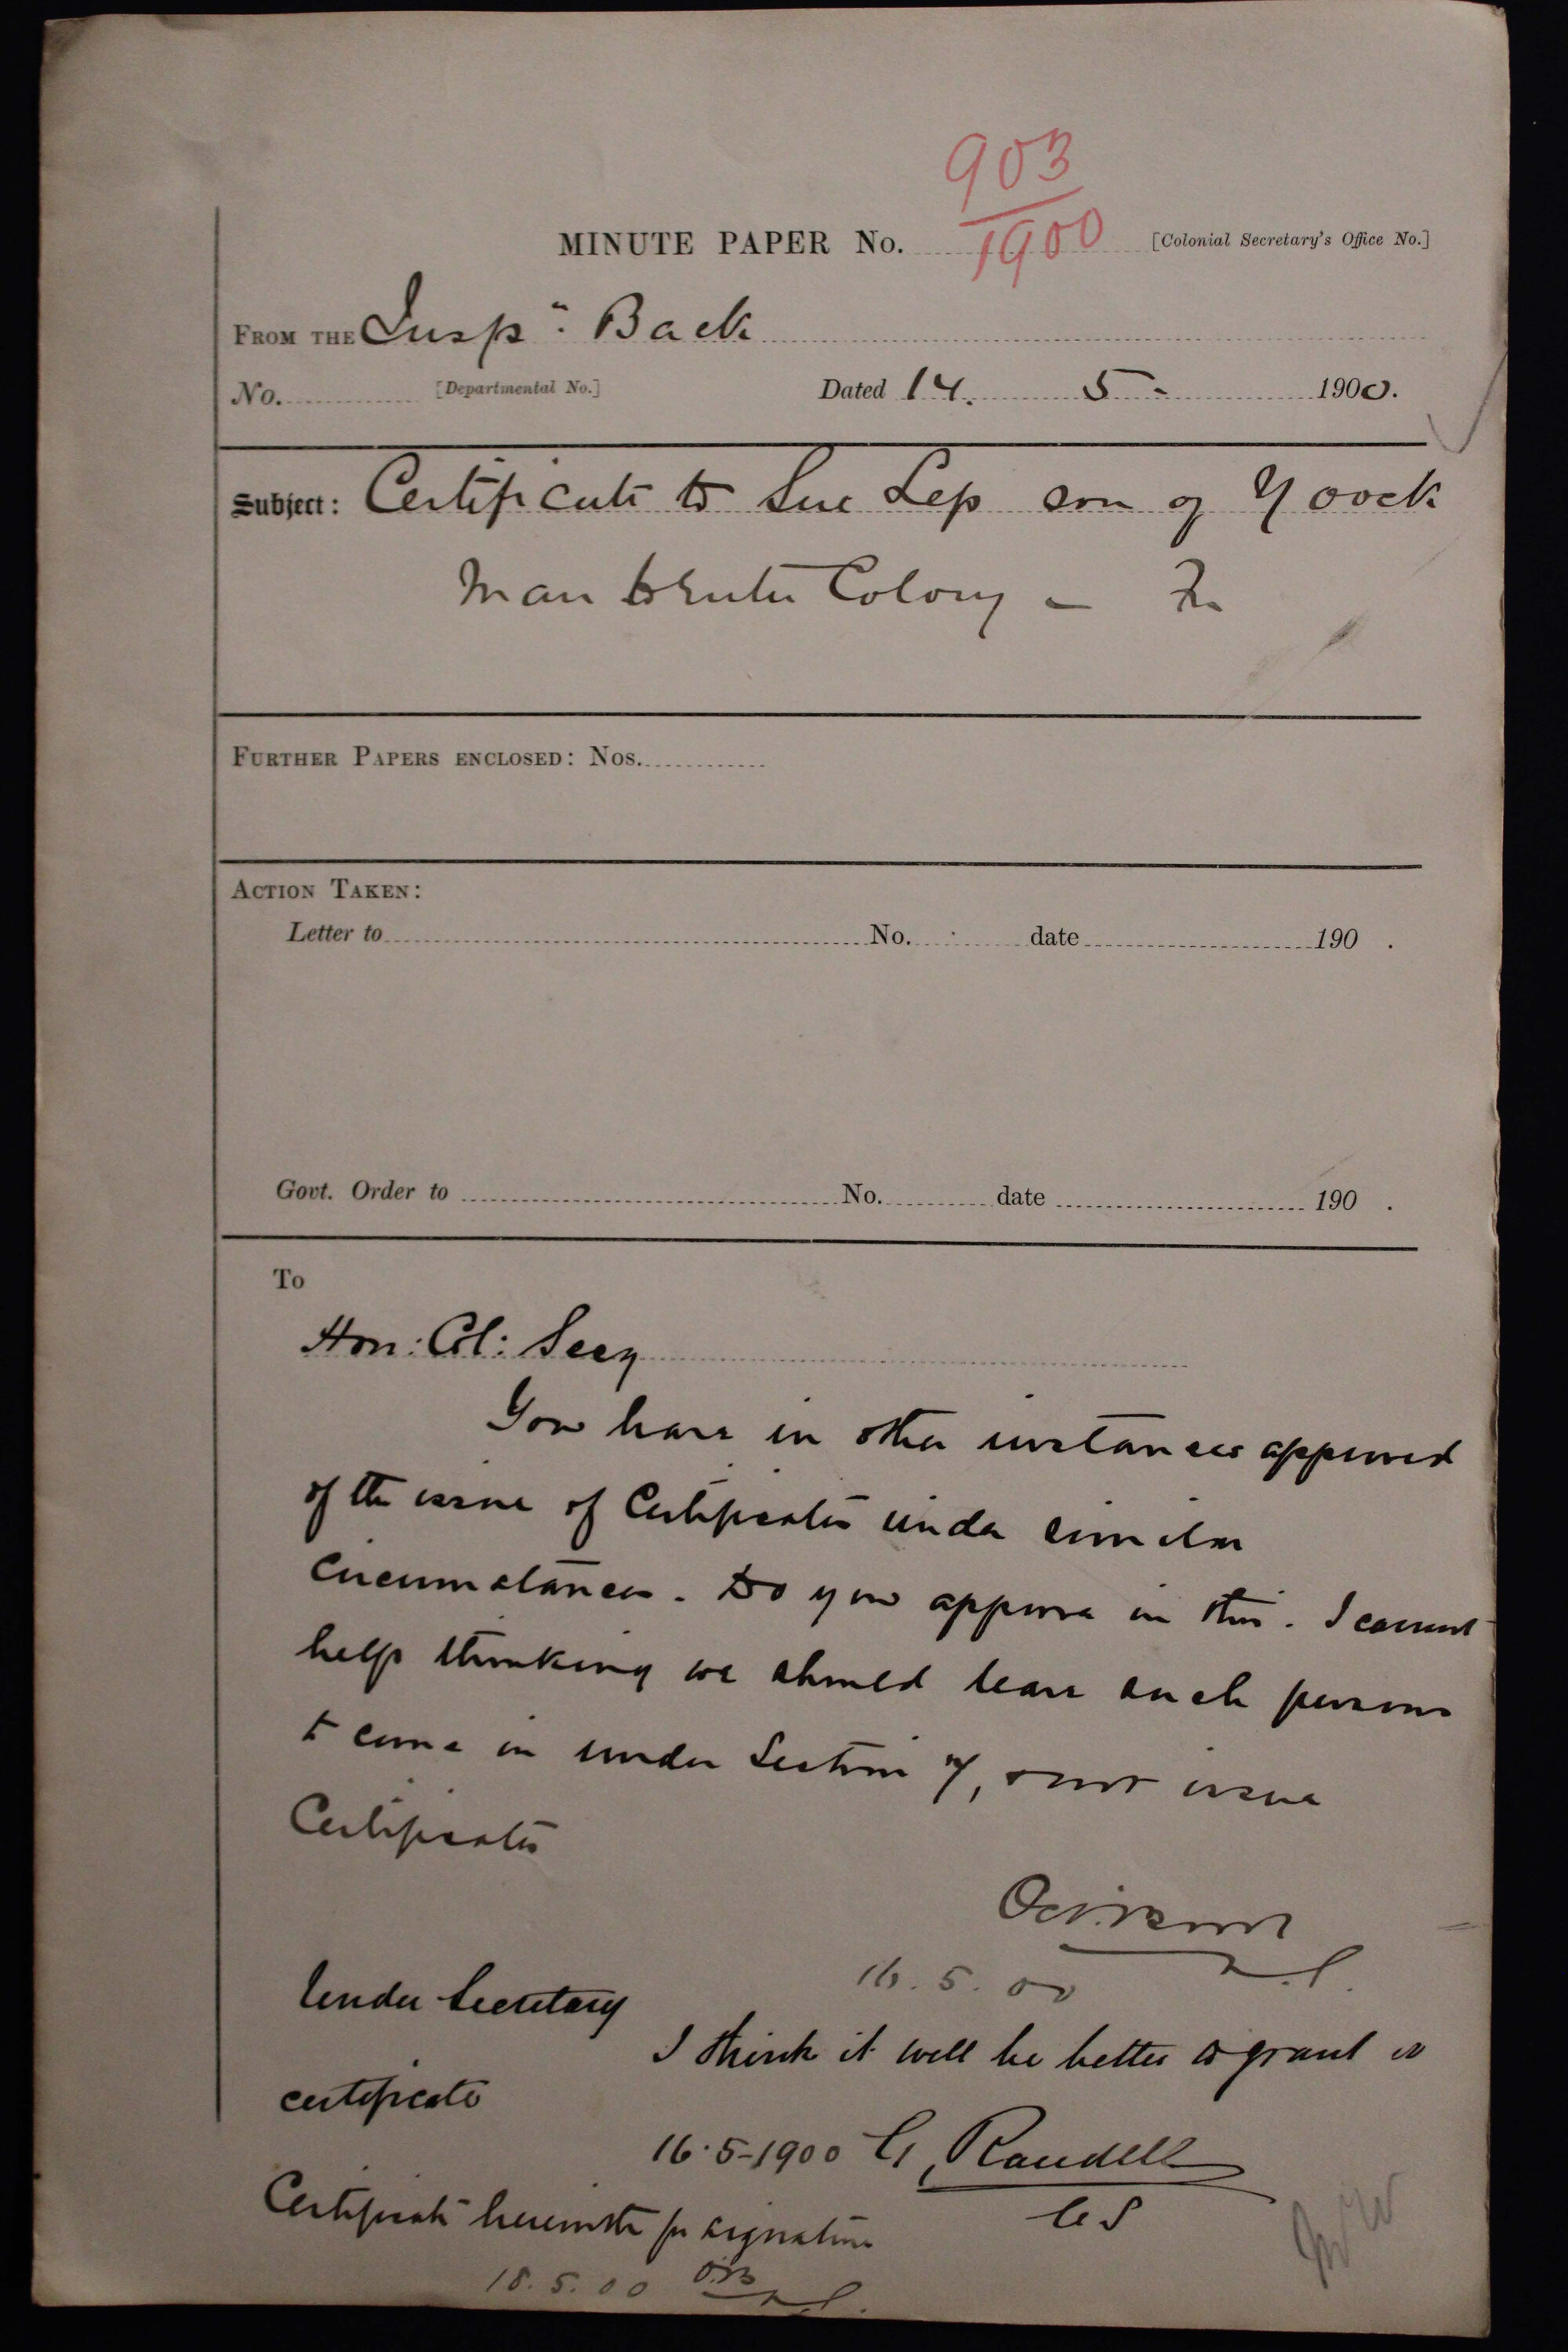 903
1900
MINUTE PAPER No. [Colonial Secretary's Office No.]
FROM THE Insp. Back
No. [Departmental No.] Dated 14. 5- 1900.
Subject: Certificate to Sue Lep son of Yoock
Man to Enter Colony -
FURTHER PAPERS ENCLOSED: Nos.
ACTION TAKEN:
Letter to No. date 190 .
Govt. Order to No. date 190 .
To
Hon: Col: Secy
You have in other instances approved
of the issue of Certificates under similar
circumstances. Do you approve in this. I cannot
help thinking we should leave such persons
to come in under Section 7, & not issue
Certificates
16.5.00
Under Secretary
I think it will be better to grant a
certificate
16.5-1900 G, Randell
CS
Certificate herewith for signature
18.5.00 OB